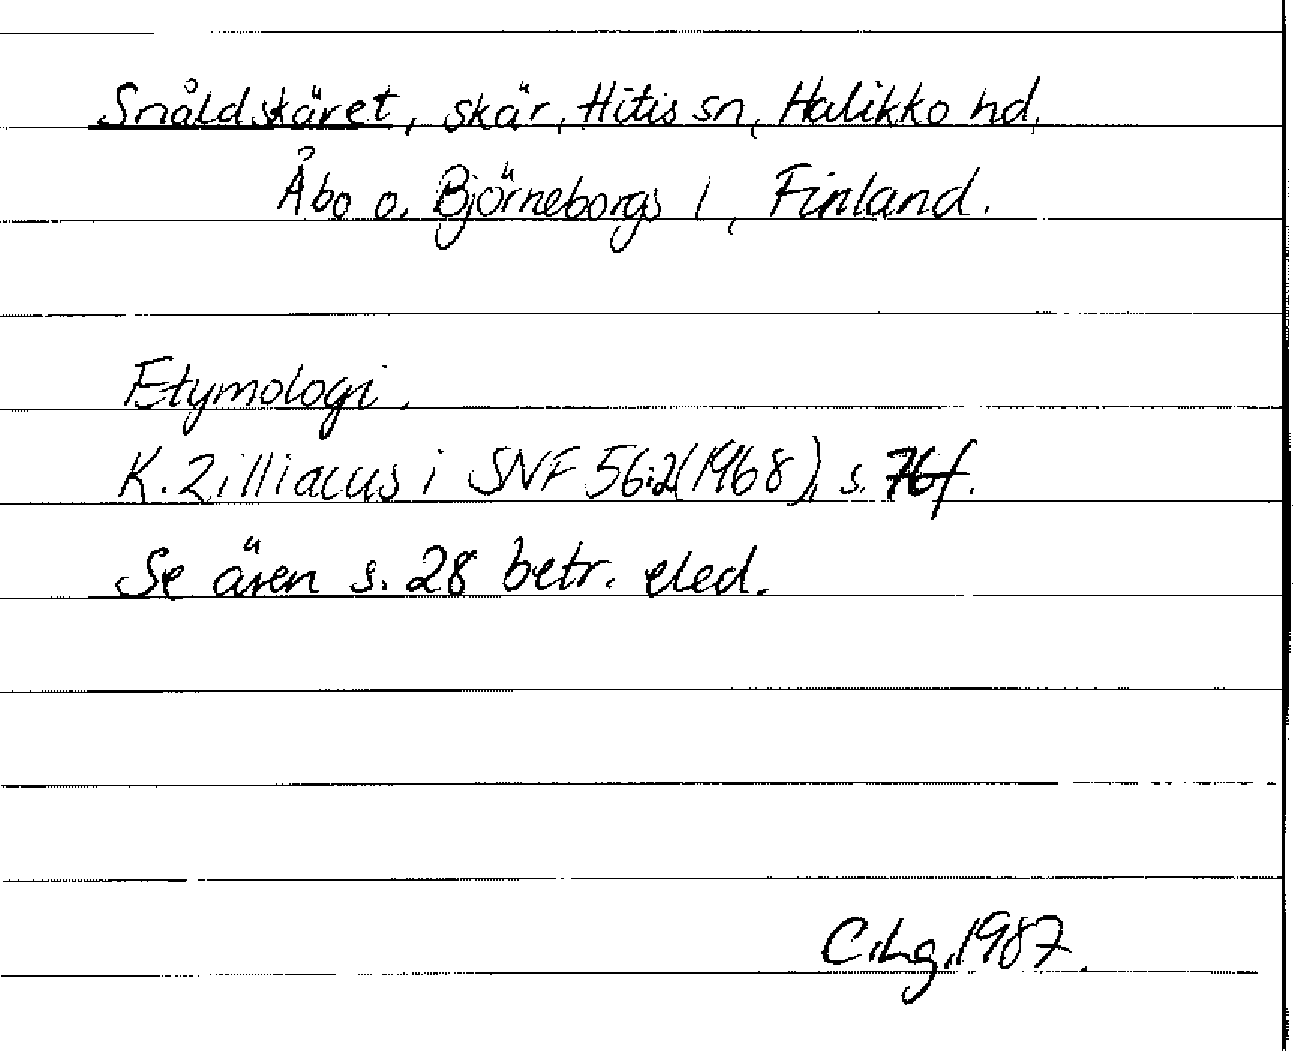 Snåldskäret, skär, Hitis sn, Halikko hd,
Åbo o. Björneborgs l, Finland.
Etymologi.
K. Zilliacus i SNF 56:2(1968), s. 76f.
Se även s. 28 betr. eled.
C.Lg,1987.